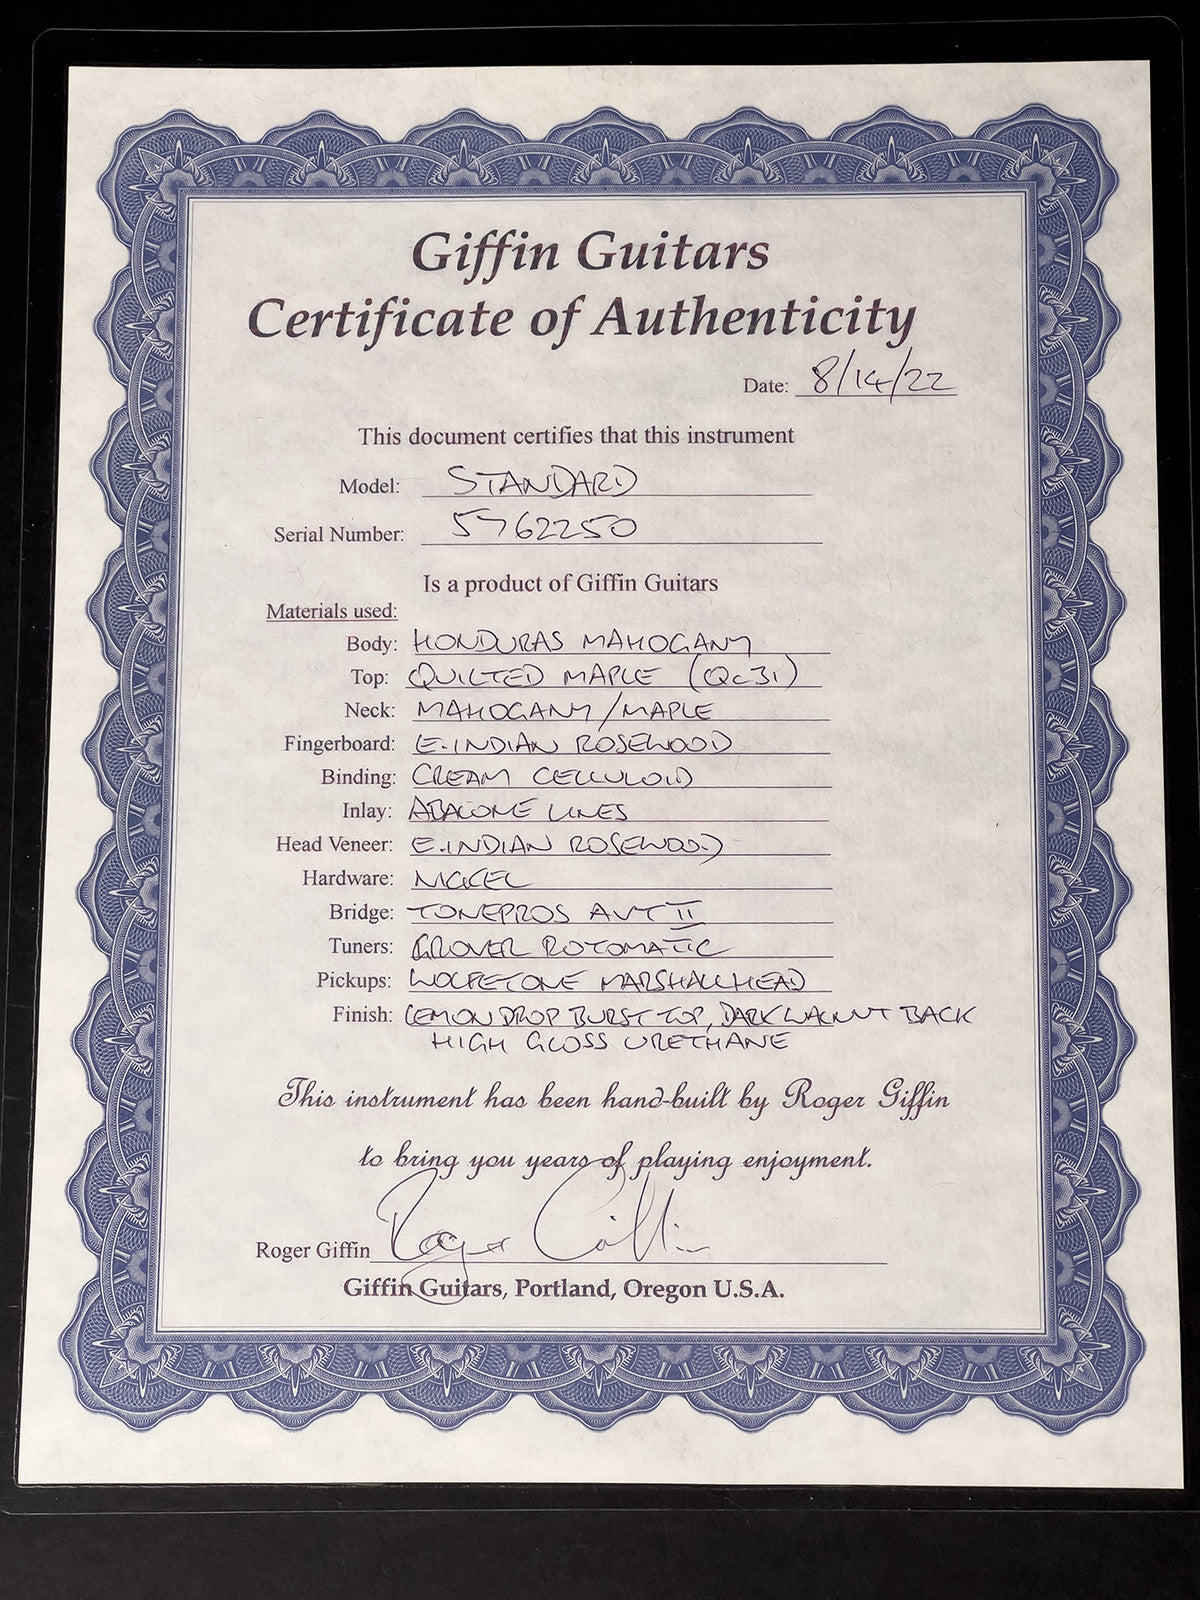 Giffin Guitars
Certificate of Authenticity
Date: 8/14/22
This document certifies that this instrument
Model: STANDARD
Serial Number: 5762250
Is a product of Giffin Guitars
Materials used:
Body: HONDURAS MAHOGANY
Top: QUILTED MAPLE (QC31)
Neck: MAHOGANY/MAPLE
Fingerboard: E. INDIAN ROSEWOOD
Binding: CREAM CELLULOID
Inlay: ABALONE LINES
Head Veneer: E. INDIAN ROSEWOOD
Hardware: NICKEL
Bridge: TONEPROS AVT II
Tuners: GROVER ROTOMATIC
Pickups: WOLFETONE MARSHALLHEAD
Finish: LEMON DROP BURST TOP, DARK WALNUT BACK
HIGH GLOSS URETHANE
This instrument has been hand-built by Roger Giffin
to bring you years of playing enjoyment.
Roger Giffin Roger Giffin
Giffin Guitars, Portland, Oregon U.S.A.